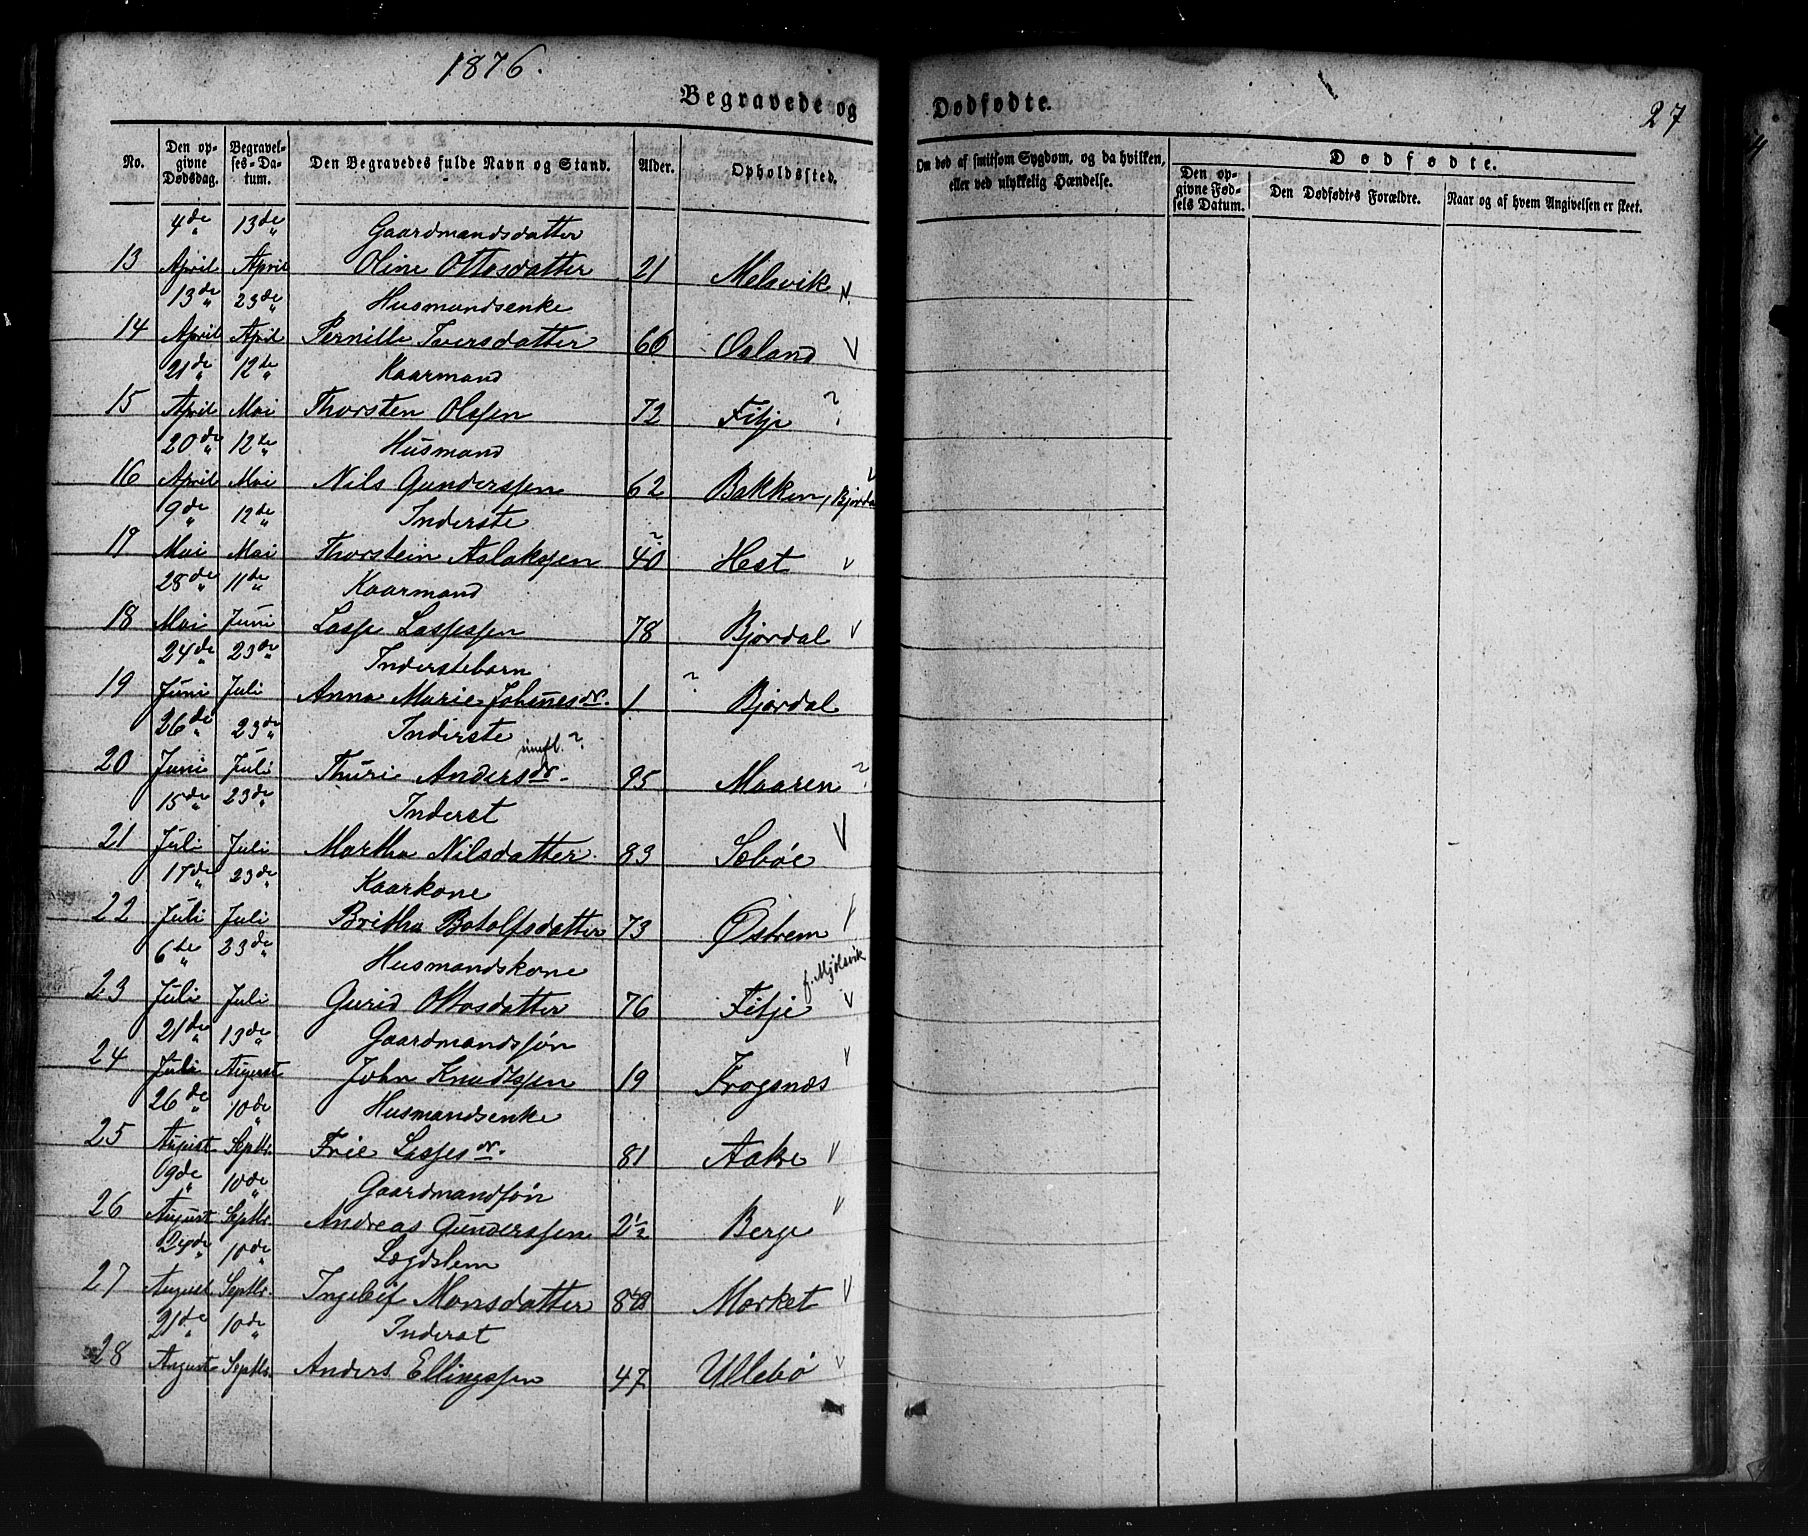 1876.
Begravede og Dødfødte. 27
No. Den opgivne Dødsdag. Begravelses-Datum. Den Begravedes fulde Navn og Stand. Alder. Opholdssted. Om død af smitsom Sygdom, og da hvilken, eller ved ulykkelig Hændelse. Dødfødte.
Den opgivne Fødsels Datum. Den Dødfødtes Forældre. Naar og af hvem Angivelsen er skeet.
4de 13de Gaardmandsdatter
13 April April Oline Ottosdatter 21 Melsvik
13de 23de Husmandsenke
14 April April Pernille Iversdatter 60 Osland V
21de 12te Kaarmand
15 April Mai Thorsten Olssen 72 Fitje ?
20de 12te Husmand
16 April Mai Nils Gunderssen 62 Bakken, Bjorda V
9de 12te Inderste
19 Mai Mai Thorstein Aslakssen 40 ? Hest V
28de 11te Kaarmand
18 Mai Juni Lasse Lassessen 78 Bjordal V
24de 23de Inderstebarn
19 Juni Juli Anna Marie Johnesdr. 1 ? Bjordal
26de 23de Inderste
20 Juni Juli Thuri Andersdr. ? 95 Maaren ?
15de 23de Inderst
21 Juli Juli Martha Nilsdatter 83 Sæbøe V
17de 23de Kaarkone
22 Juli Juli Britha Botolfsdatter 73 Østrem V
6te 23de Husmandskone f. Mjølsvik
23 Juli Juli Gurid Ottosdatter 76 Fitje V
21de 13de Gaardmandssøn
24 Juli August John Knudssen 19 Frogsnæs V
26de 10de Husmandsenke
25 August Septbr. Frie Lassesdr. 81 Aakre V
9de 10de Gaardmandsøn
26 August Septbr. Andreas Gunderssen 2½ Berge V
24de 10de Lægdslem
27 August Septbr. Ingebif Monsdatter Morket V
21de 10de Inderst
28 August Septbr. Anders Ellingssen 47 Ullebø V